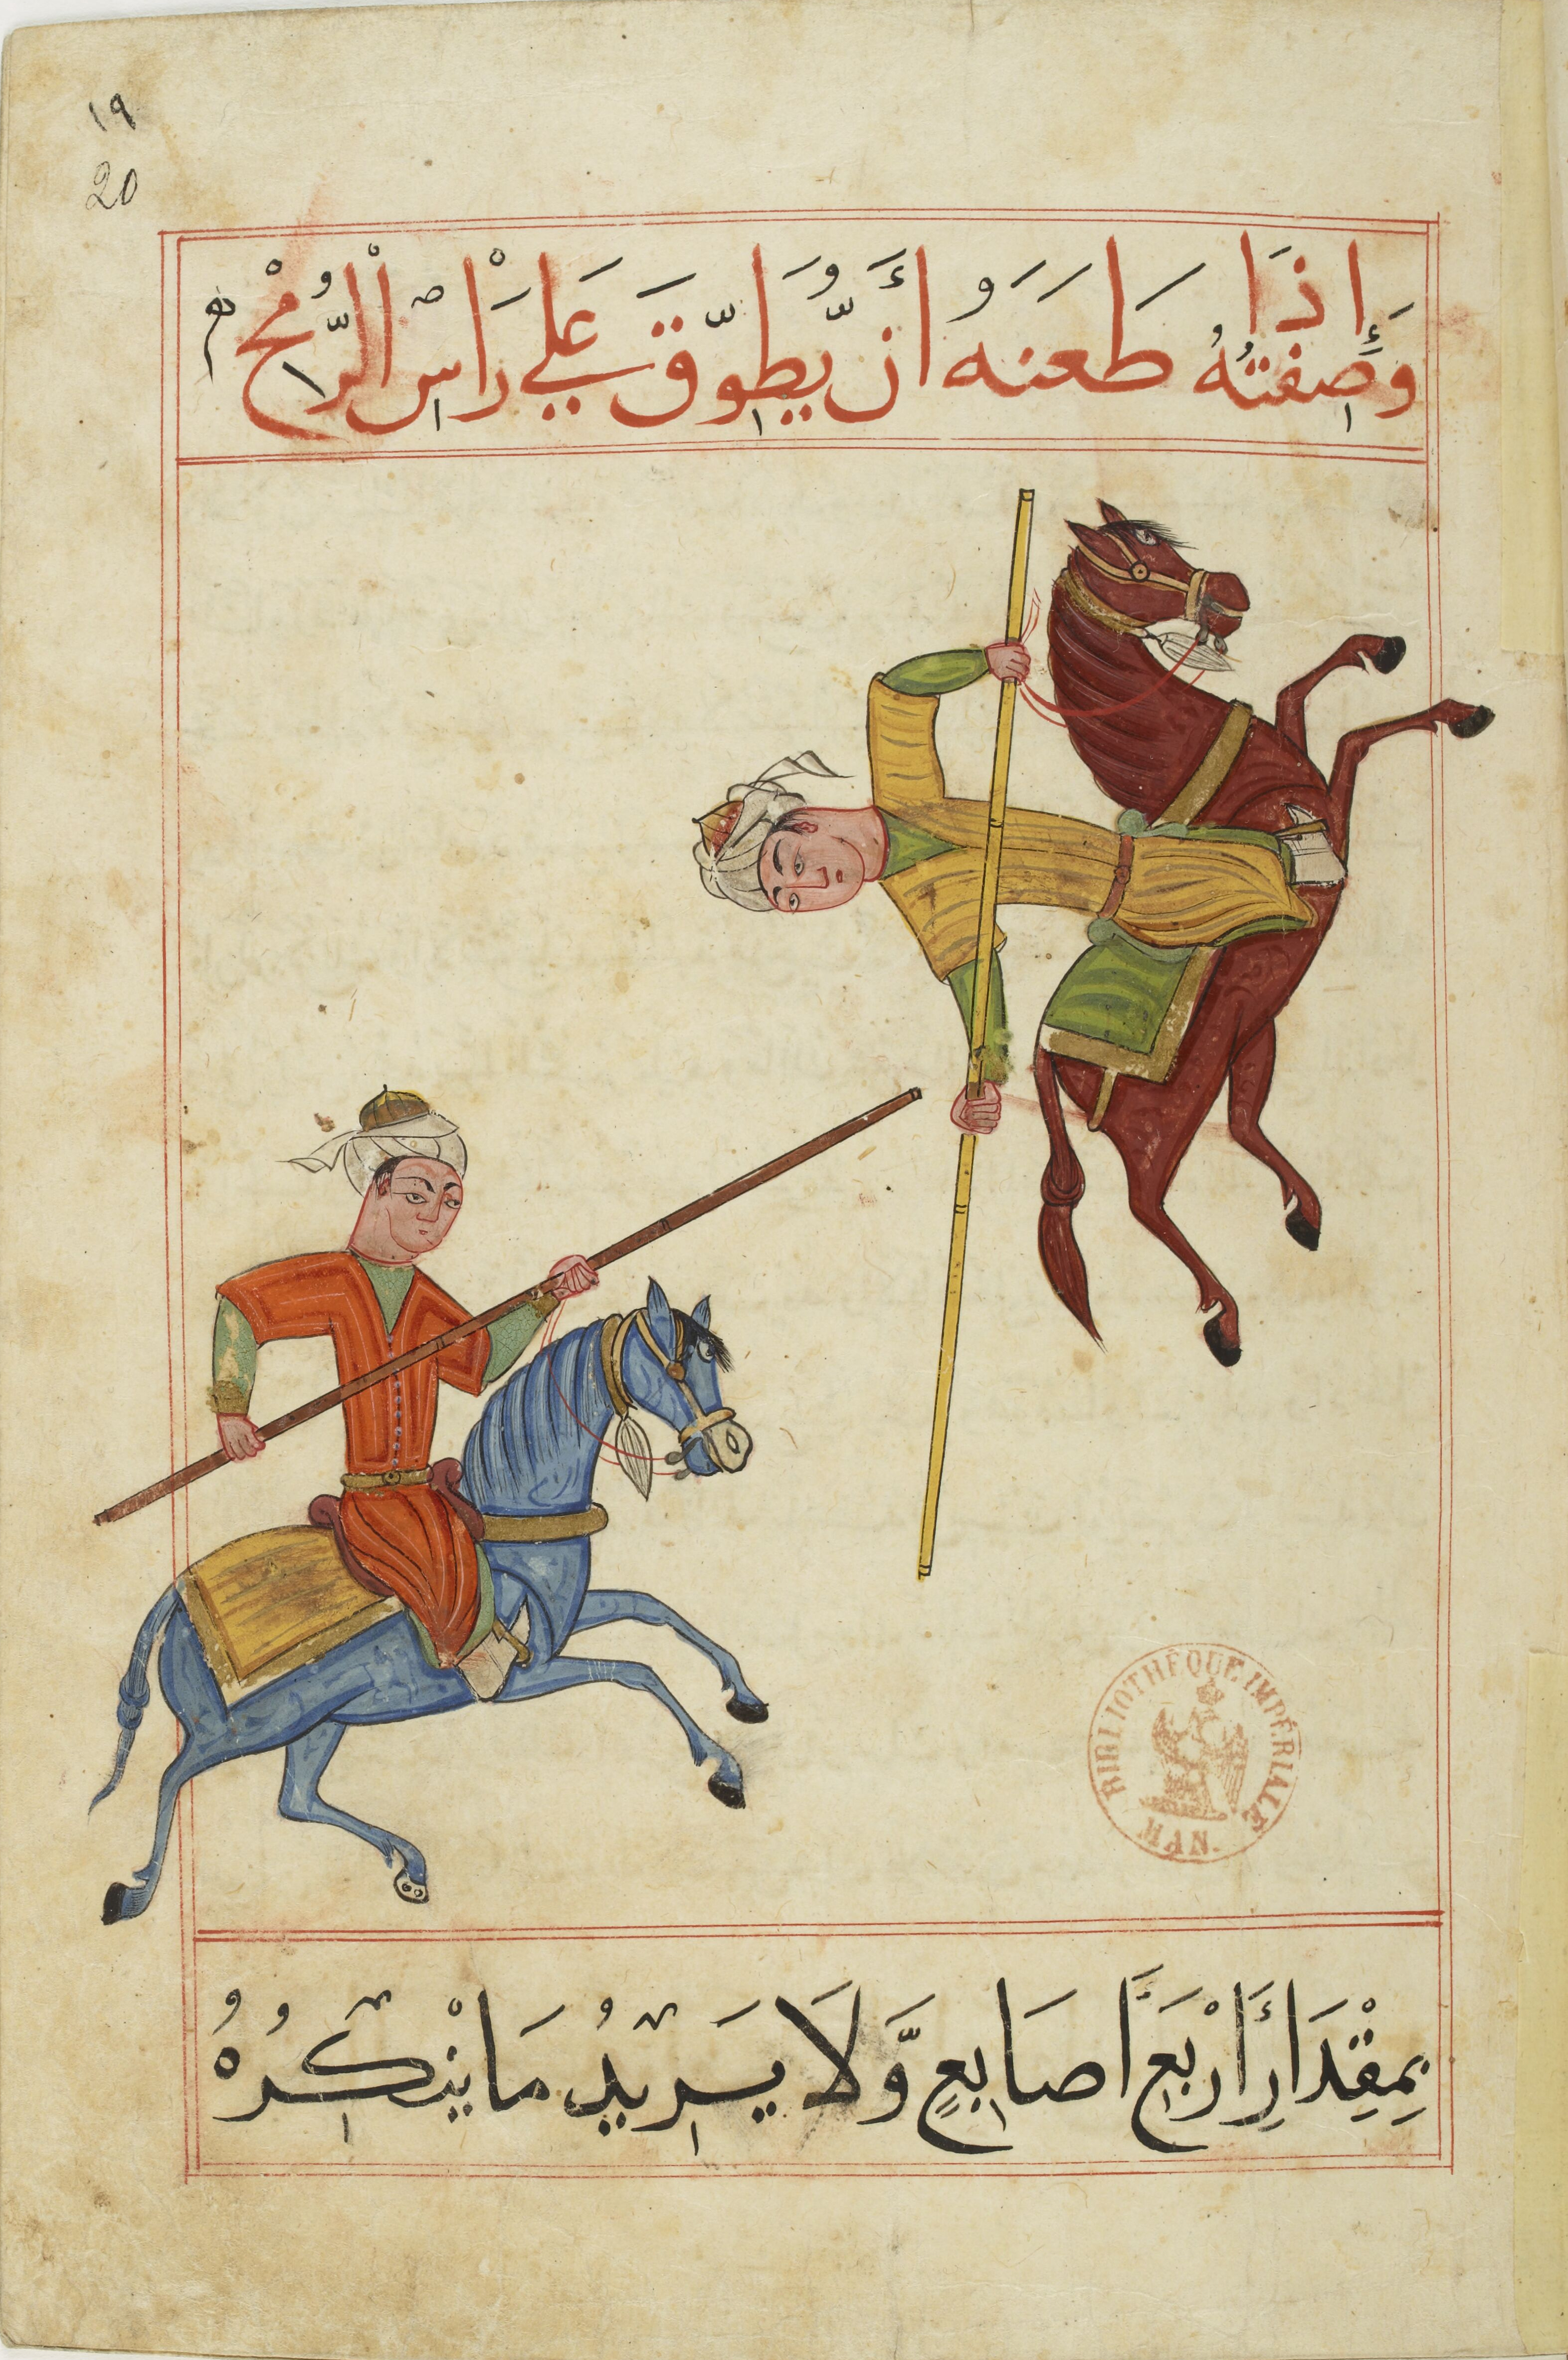 ١٩
20
وَصِفَتُهُ إِذَا طَعَنَهُ أَنْ يُّطَوِّقَ عَلَي رَاْسِ الْرُّمْحِ
BIBLIOTHÈQUE IMPÉRIALE
MAN.
بِمِقْدَارِ أَرْبَعِ اَصَابِعٍ وَّلَا يَرِيْدُ مَا يْنكِرُهُ